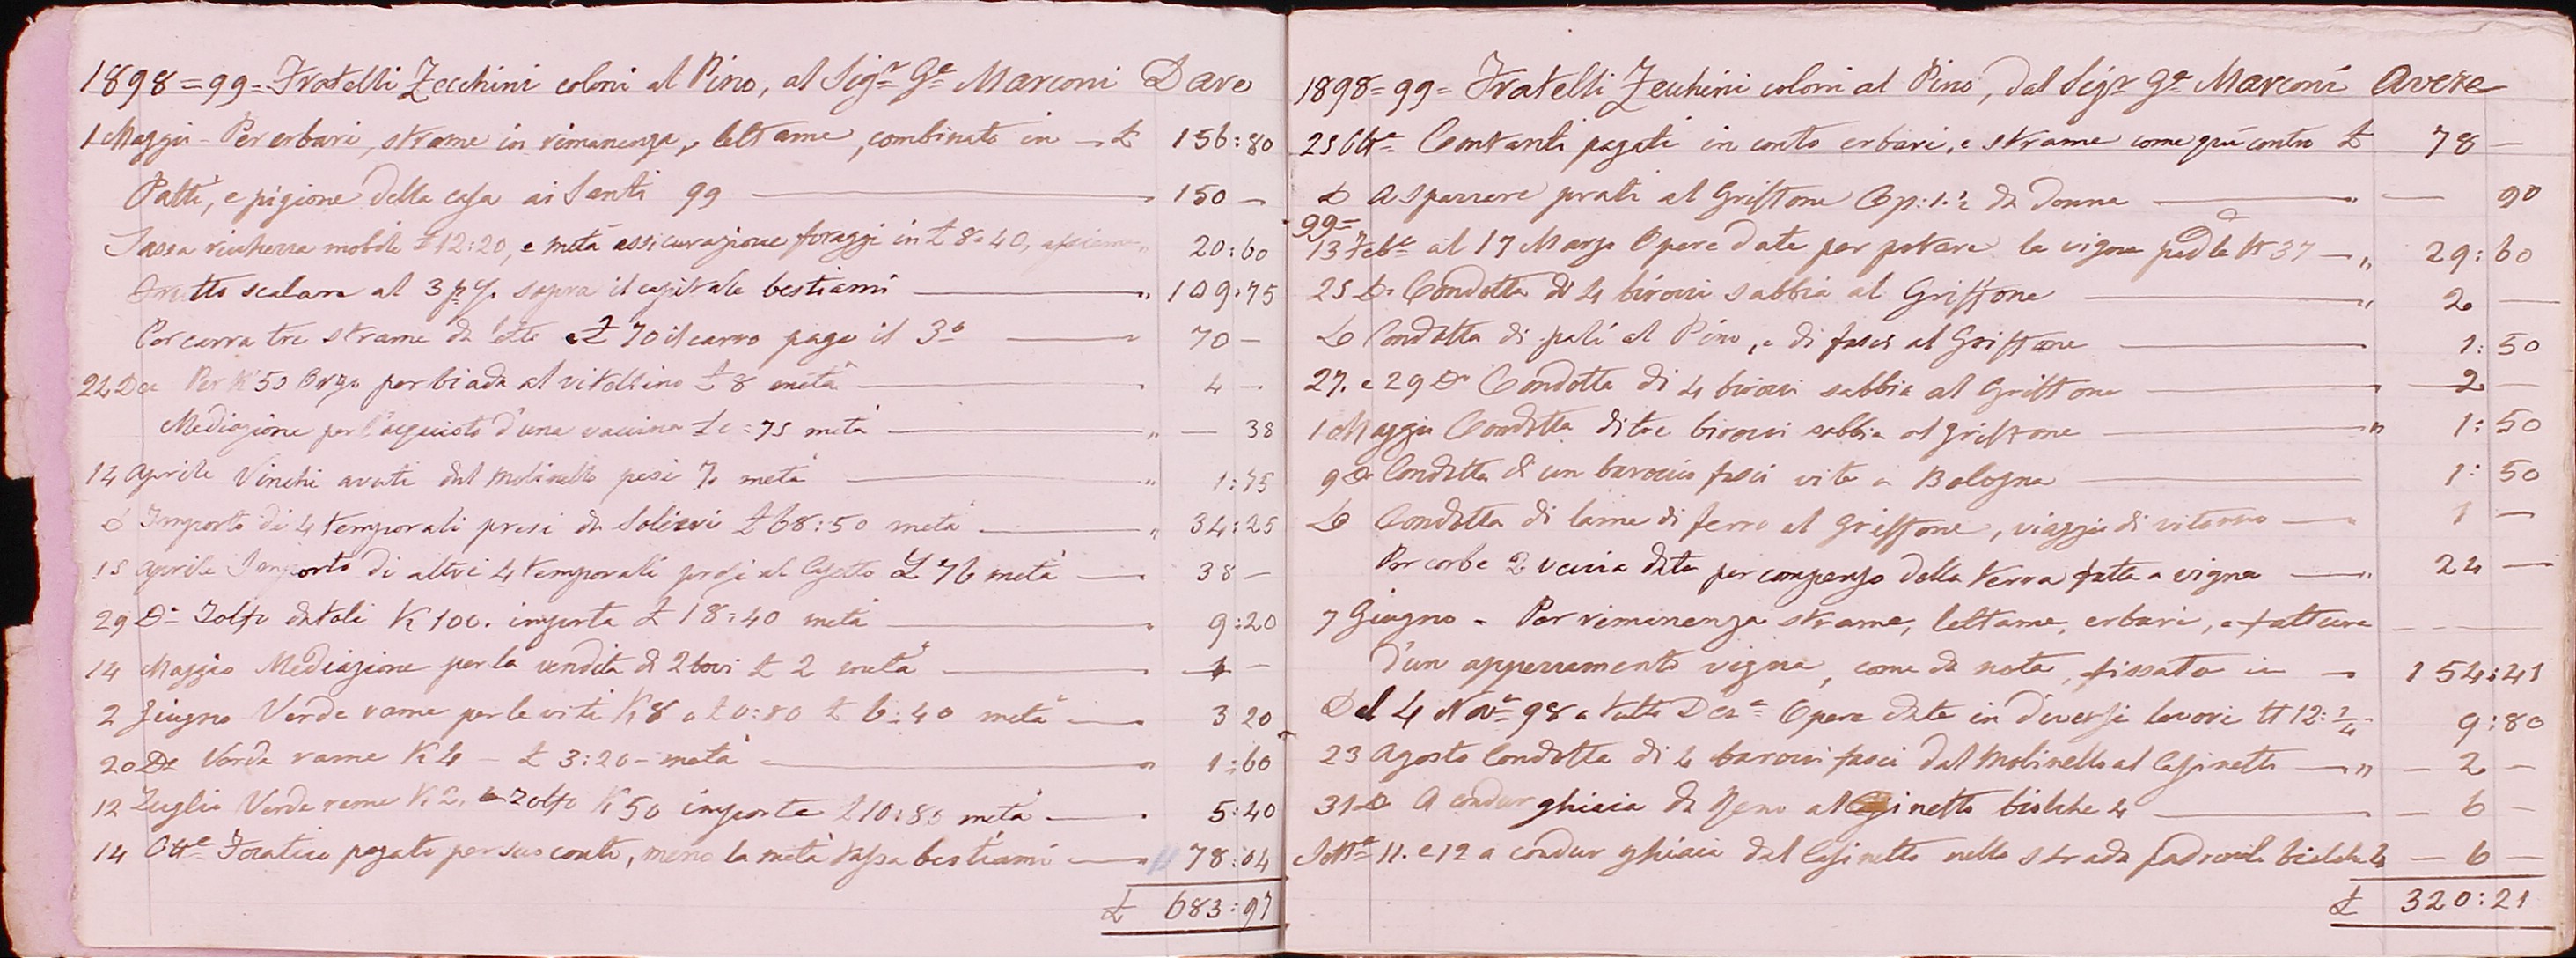 1898=99= Fratelli Zecchini coloni al Pino, al Sigr Ge Marconi Dare
1 Maggio - Per erbari, strame in rimanenza, lettame, combinato in £ 156:80
Patti, e pigione della casa ai Santi 99 150 —
Tassa ricchezza mobile £ 12:20, e metà assicurazione foraggi in £ 8:40, assieme " 20:60
Frutto scalare al 3 p% sopra il capitale bestiami " 109:75
Per carra tre strame da letto a £ 70 il carro paga il 3o 70 —
22 Dce Per K 50 Orzo per biada al vitellino £ 8 metà 4 —
Mediazione per l'acquisto d'una vaccina £ 0:75 metà " — 38
14 Aprile Vinchi avuti dal Molinello pesi 7. metà " 1:75
d Importo di 4 temporali presi da Solieri £ 68:50 metà " 34:25
15 Aprile Importo di altri 4 temporali presi al Casetto £ 76 metà 38 —
29 Do Zolfo datoli K 100. importa £ 18:40 metà 9:20
14 Maggio Mediazione per la vendita di 2 bovi £ 2 metà 1 —
2 Giugno Verde rame per le viti K 8 a £ 0:80 £ 6:40 metà 3 20
20 Do Verde rame K 4 — £ 3:20 — metà " 1:60
12 Luglio Verde rame K 2, e Zolfo K 50 importa £ 10:80 metà 5:40
14 Otte Focatico pagato per suo conto, meno la metà tassa bestiami " 78:04
£ 683:97
1898=99= Fratelli Zecchini coloni al Pino, dal Sigr Ge Marconi Avere
25 Otte Contanti pagati in conto erbari, e strame come quì contro £ 78 —
d A spazzare prati al Griffone Op: 1.½ da donna " — 90
99=
13 Febe al 17 Marzo Opere date per potare la vigna padle N 37 — " 29:60
25 Do Condotta di 4 birocci sabbia al Griffone " 2 —
Do Condotta di pali al Pino, e di fasci al Griffone 1:50
27. e 29 Do Condotta di 4 birocci sabbia al Griffone 2 —
1 Maggio Condotta di tre birocci sabbia al Griffone " 1:50
9 Do Condotta di un baroccio fasci vite a Bologna 1:50
Do Condotta di lame di ferro al Griffone, viaggio di ritorno 1 —
Per corbe 2 uccia data per compenso della terra fatta a vigna " 24 —
7 Giugno - Per rimanenza strame, lettame, erbari, e fattura
d'un appezzamento vigna, come da nota, fissato in 154:41
Dal 4 Nove 98 a tutto Dece Opere date in diversi lavori N 12:¼ 9:80
23 Agosto Condotta di 4 barocci fasci dal Molinello al Casinetto " — 2 —
31 Do A condur ghiaia da Reno al Casinetto biolche 4 — 6 —
Sette 11. e 12 a condur ghiaia dal Casinetto nella strada padronale biolche 4 — 6 —
£ 320:21